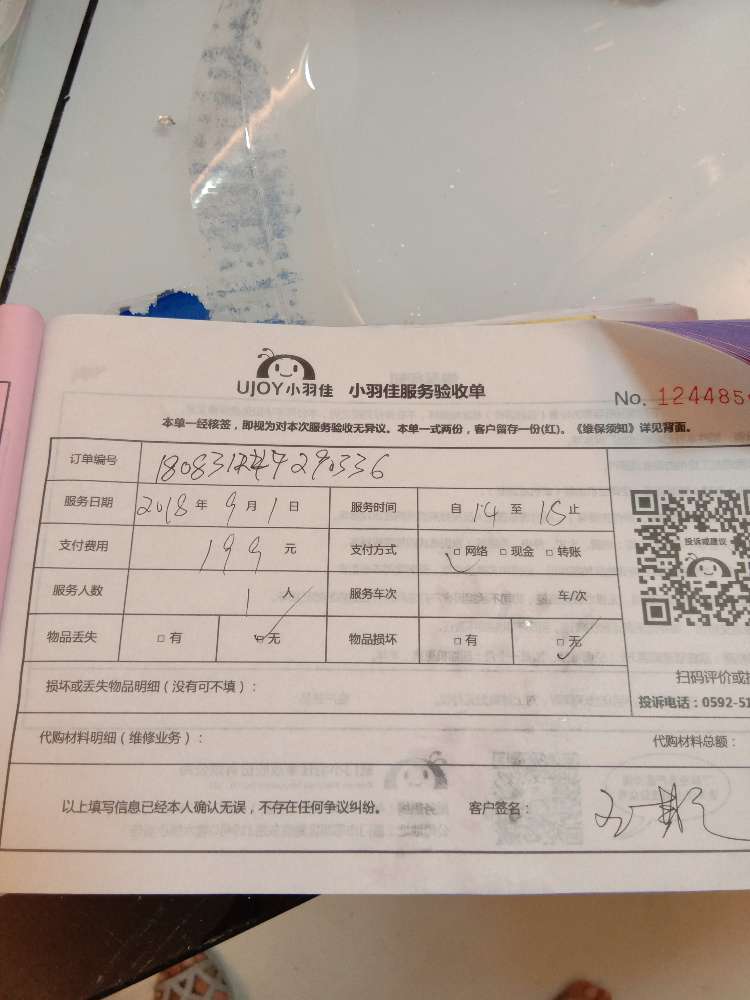 UJOY小羽佳 小羽佳服务验收单
No. 124485
本单一经核签，即视为对本次服务验收无异议。本单一式两份，客户留存一份(红)。《维保须知》详见背面。
订单编号
服务日期 2018 年 9 月 1 日 服务时间 自 14 至 18 止
支付费用 199 元 支付方式 □ 网络 □ 现金 □ 转账
投诉或建议
服务人数 1 人 服务车次 车/次
物品丢失 □ 有 □ 无 物品损坏 □ 有 □ 无
扫码评价或
损坏或丢失物品明细（没有可不填）：
投诉电话：0592-51
代购材料明细（维修业务）： 代购材料总额：
以上填写信息已经本人确认无误，不存在任何争议纠纷。 客户签名：